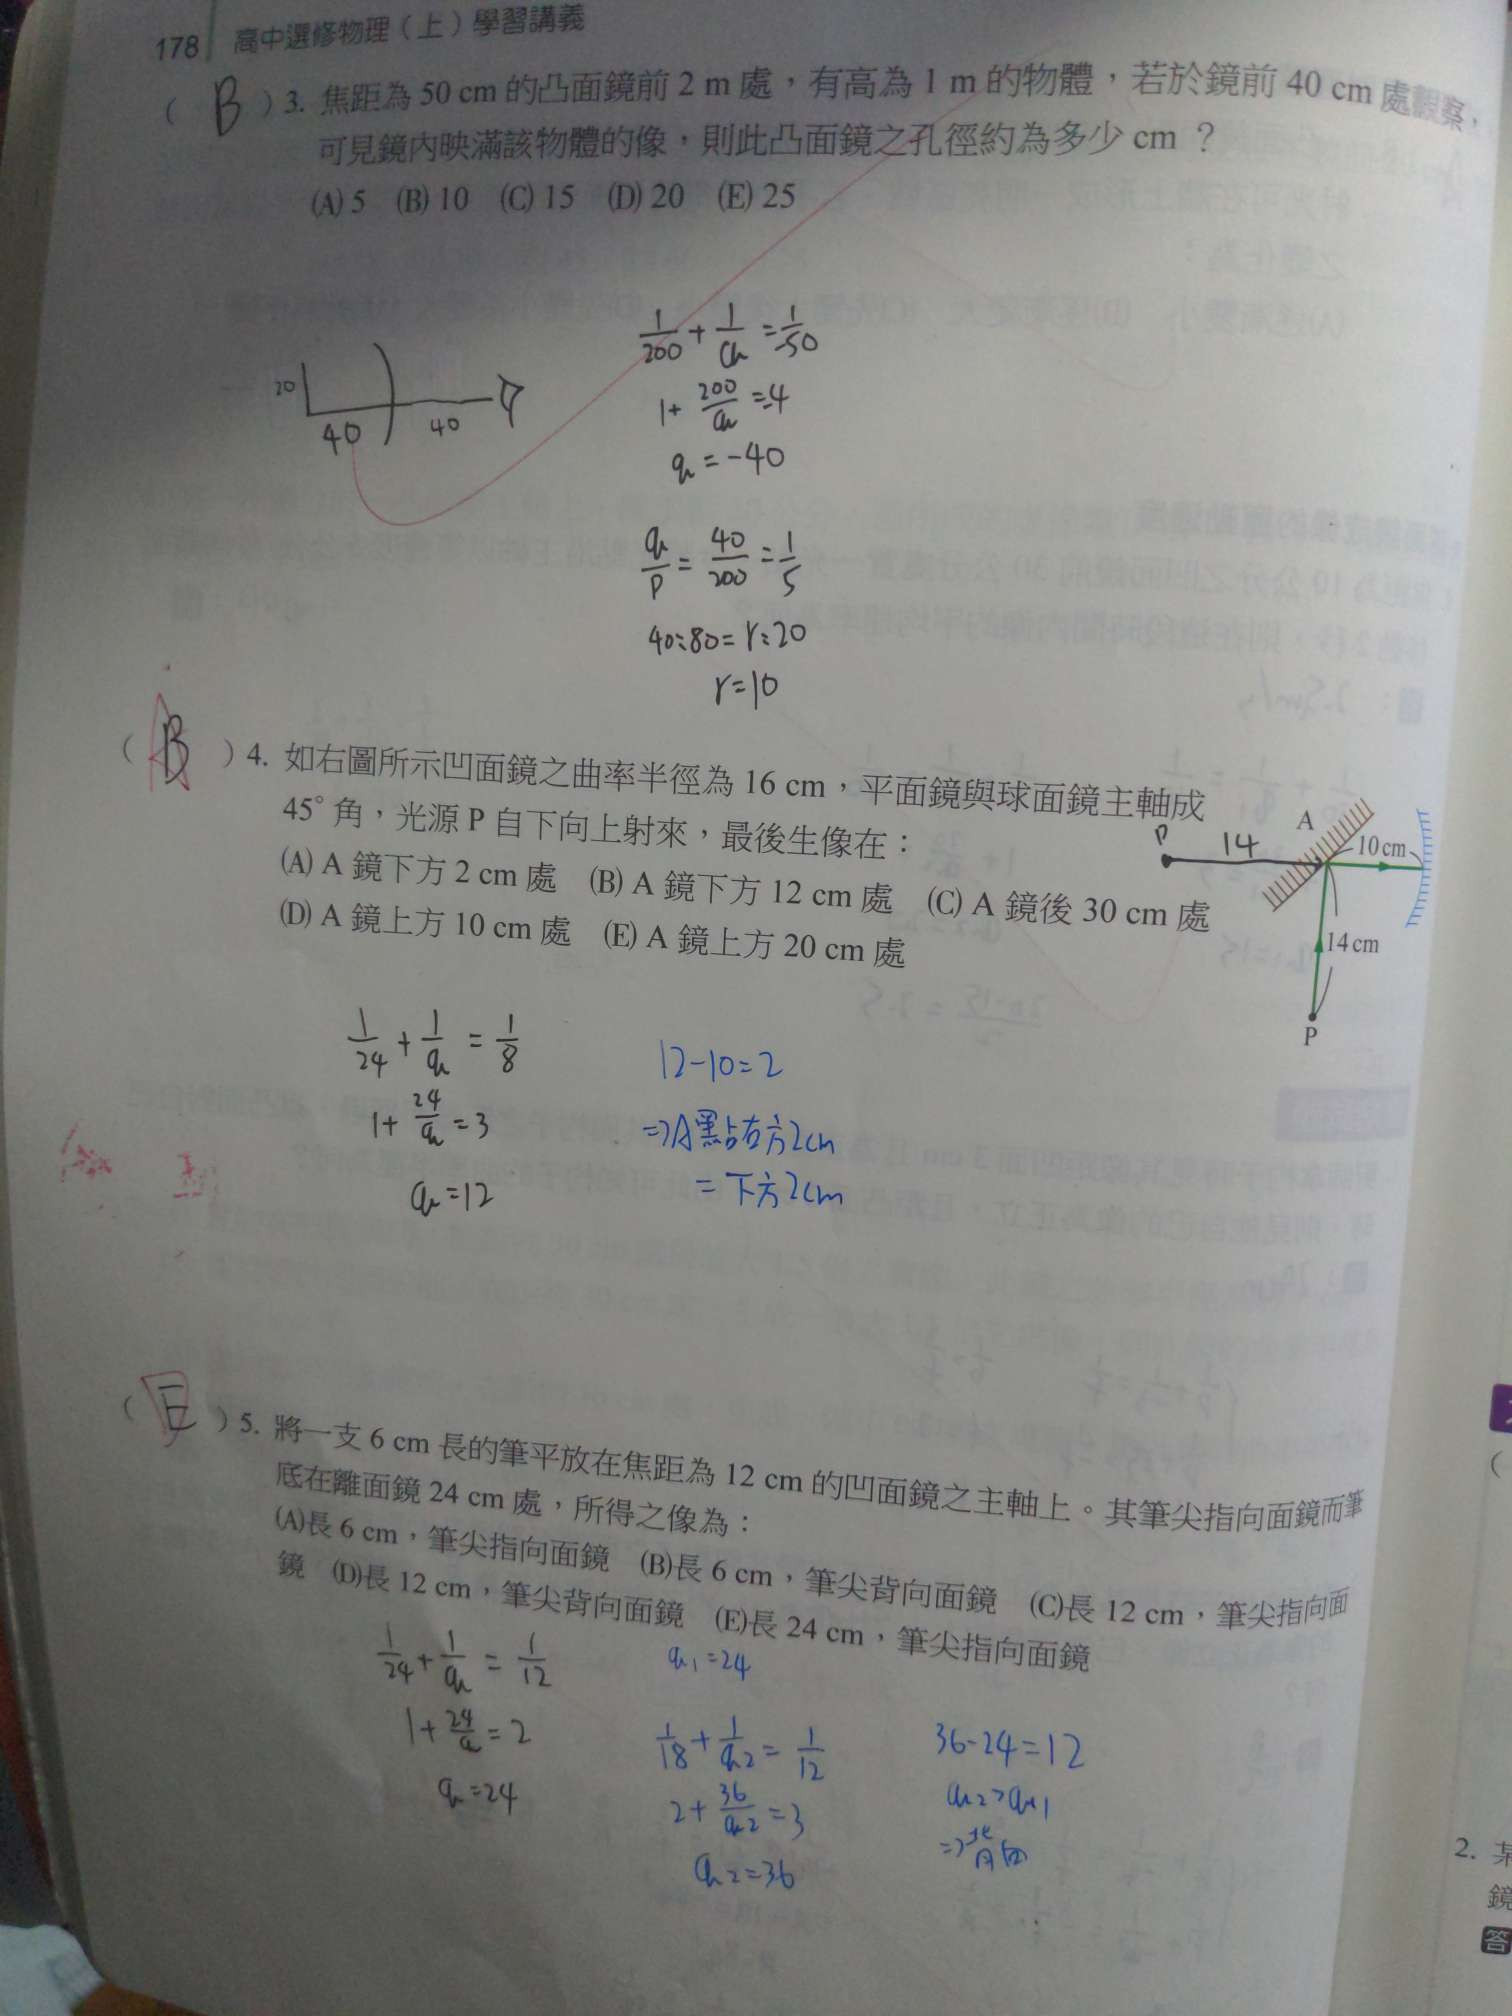 178 高中選修物理（上）學習講義
( B ) 3. 焦距為 50 cm 的凸面鏡前 2 m 處，有高為 1 m 的物體，若於鏡前 40 cm 處觀察，
可見鏡內映滿該物體的像，則此凸面鏡之孔徑約為多少 cm ？
(A) 5 (B) 10 (C) 15 (D) 20 (E) 25
1/200 + 1/q = 1/-50
1 + 200/q = -4
q = -40
20
40 40
q/p = 40/200 = 1/5
40:80 = r:20
r = 10
( B ) 4. 如右圖所示凹面鏡之曲率半徑為 16 cm，平面鏡與球面鏡主軸成
45° 角，光源 P 自下向上射來，最後生像在：
(A) A 鏡下方 2 cm 處 (B) A 鏡下方 12 cm 處 (C) A 鏡後 30 cm 處
(D) A 鏡上方 10 cm 處 (E) A 鏡上方 20 cm 處
P 14 A 10 cm
14 cm
P
1/24 + 1/q = 1/8
1 + 24/q = 3
q = 12
12-10=2
⇒A點右方2cm
= 下方2cm
( E ) 5. 將一支 6 cm 長的筆平放在焦距為 12 cm 的凹面鏡之主軸上。其筆尖指向面鏡而筆
底在離面鏡 24 cm 處，所得之像為：
(A)長 6 cm，筆尖指向面鏡 (B)長 6 cm，筆尖背向面鏡 (C)長 12 cm，筆尖指向面
鏡 (D)長 12 cm，筆尖背向面鏡 (E)長 24 cm，筆尖指向面鏡
1/24 + 1/q = 1/12
1 + 24/q = 2
q = 24
q1 = 24
1/18 + 1/q2 = 1/12
2 + 36/q2 = 3
q2 = 36
36-24=12
q2>q1
⇒背向
2. 某
鏡
答